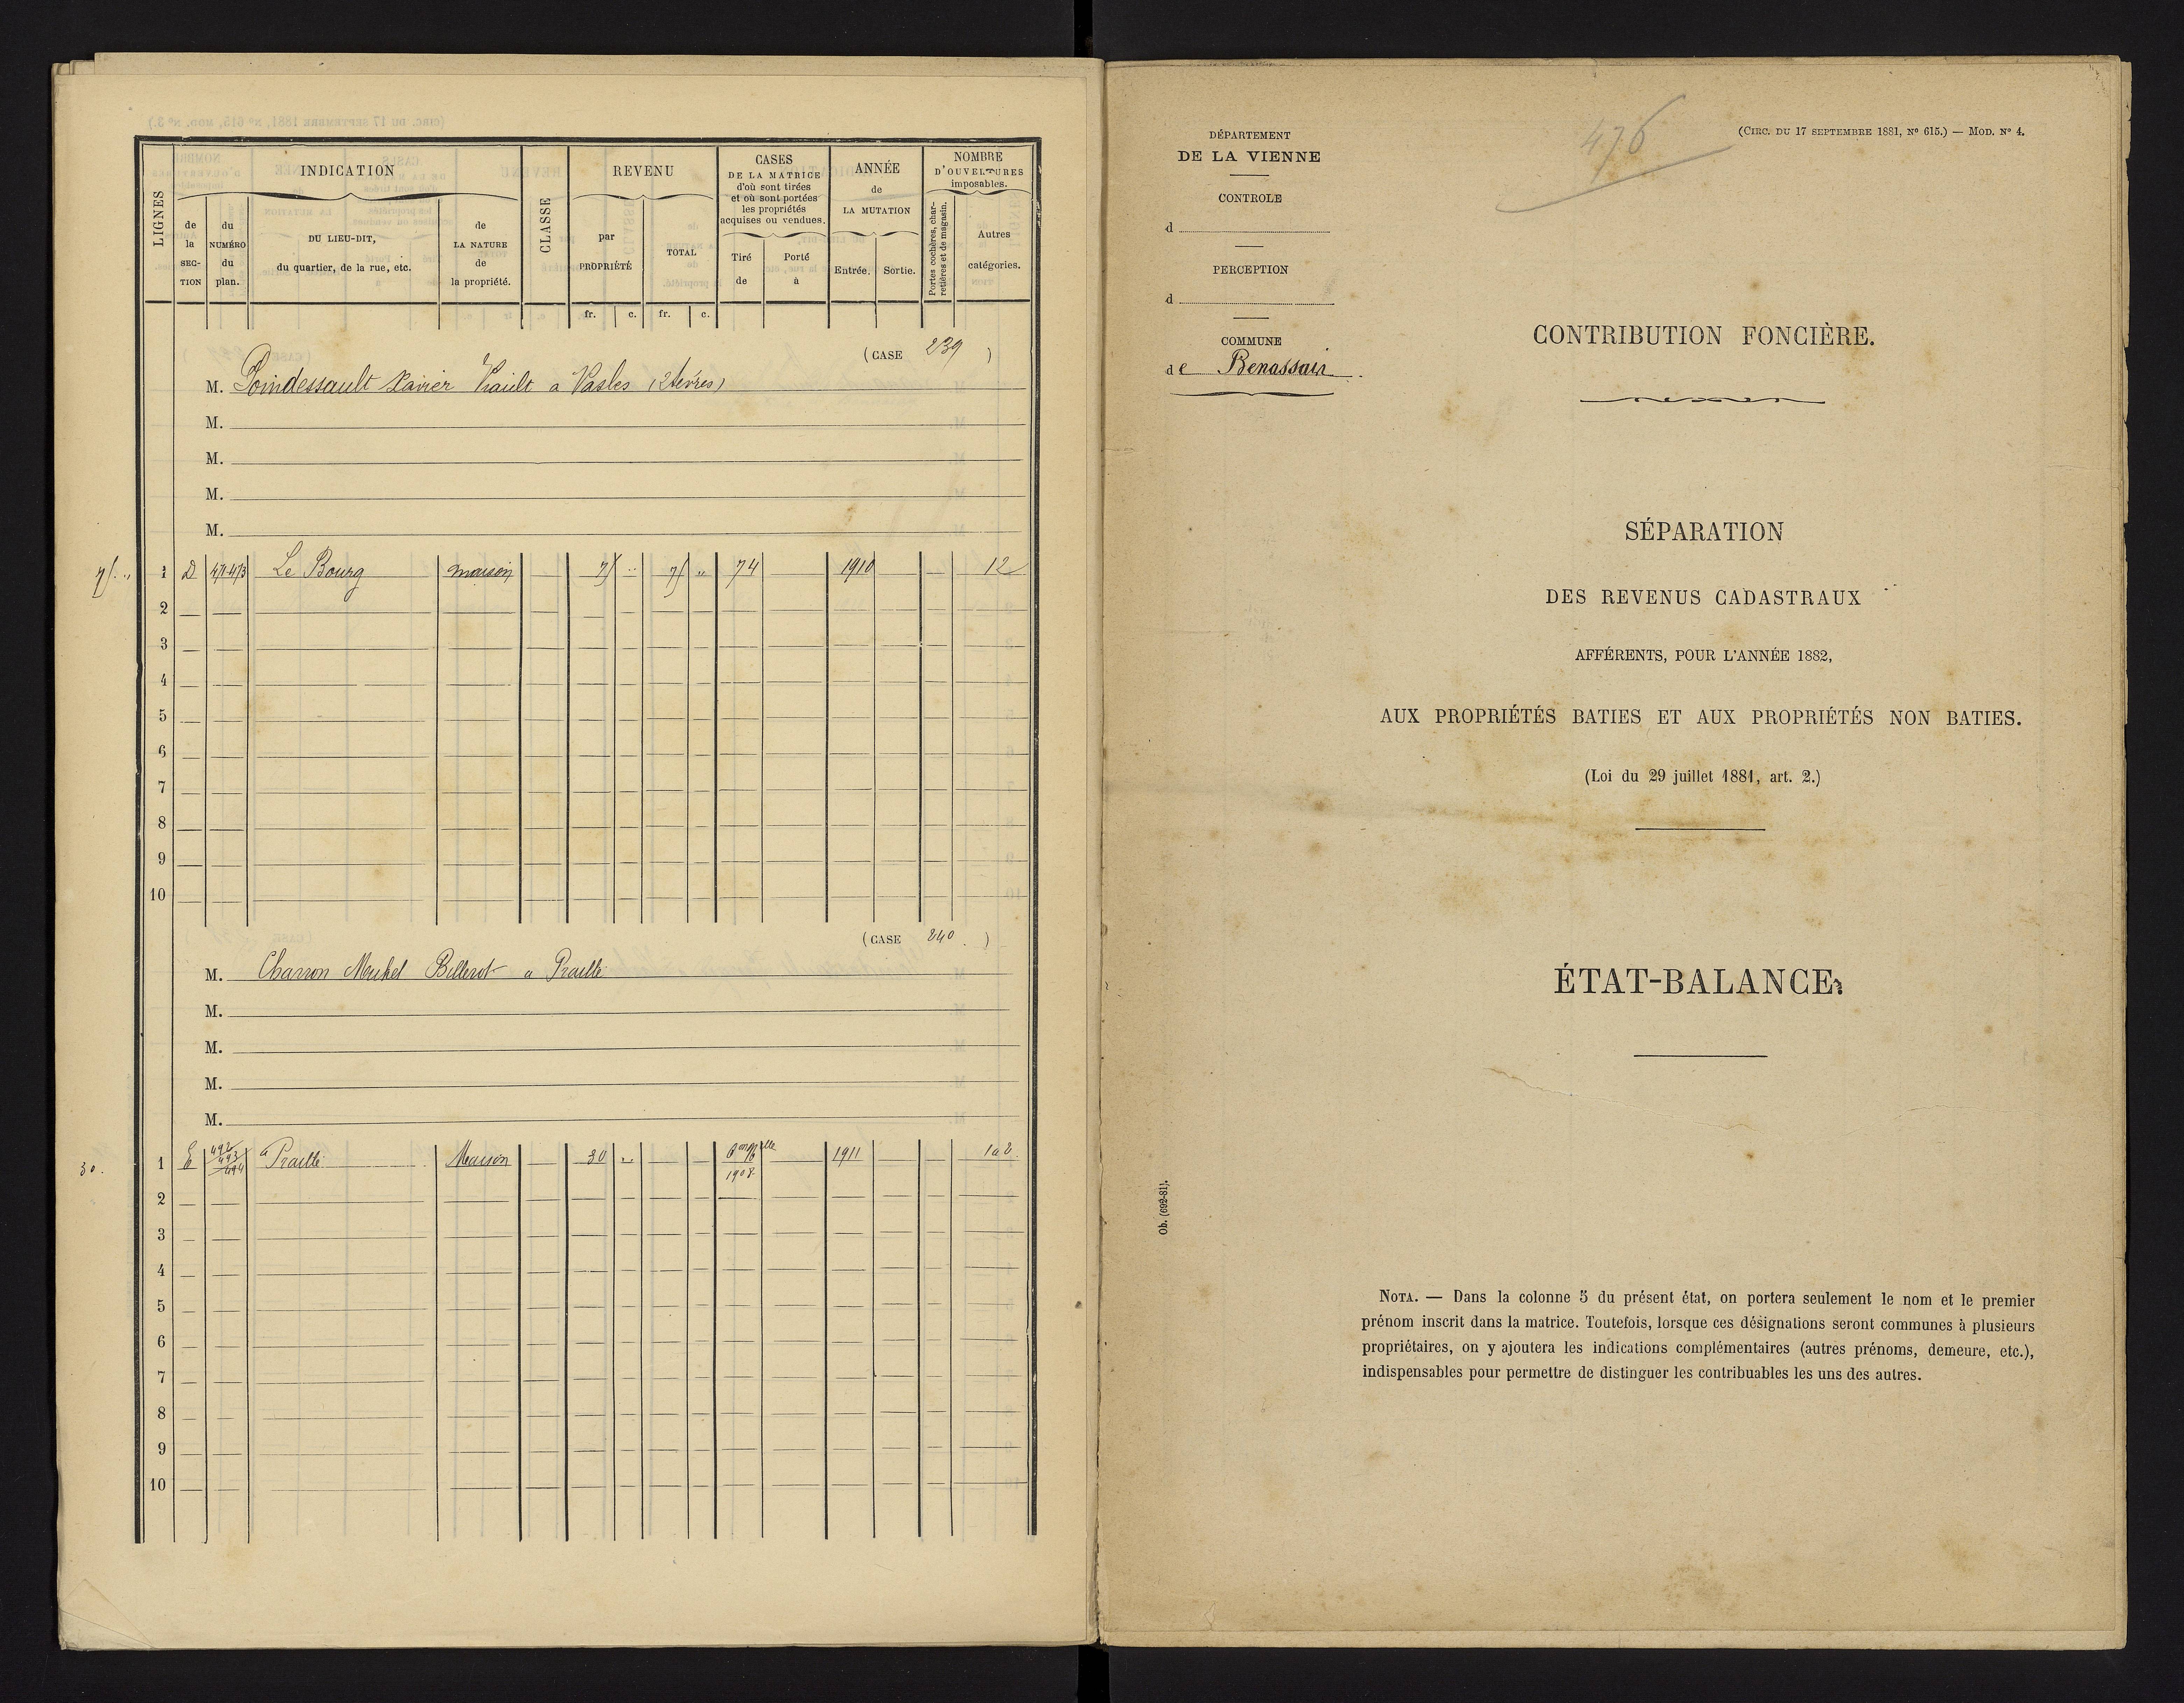 LIGNES
INDICATION
de la SECTION
du NUMÉRO du plan.
DU LIEU-DIT, du quartier, de la rue, etc.
de LA NATURE de la propriété.
CLASSE
REVENU
par PROPRIÉTÉ
TOTAL
CASES DE LA MATRICE d'où sont tirées et où sont portées les propriétés acquises ou vendues.
Tiré de
Porté à
ANNÉE de LA MUTATION
Entrée.
Sortie.
NOMBRE D'OUVERTURES imposables.
Portes cochères, charretières et de magasin.
Autres catégories.
fr. c. fr. c.
(CASE 239 )
M. Poindessault Xavier Viault a Vasles (2 Sèvres)
M.
M.
M.
M.
1 D 471-473 Le Bourg maison 74 1910 12
2
3
4
5
6
7
8
9
10
(CASE 240 . )
M. Charron Michel Billerot a Praille
M.
M.
M.
M.
30. 1 E 492 493 494 a Praille Maison 30 " 1908 1911 1 a 2
2
3
4
5
6
7
8
9
10
476
(CIRC. DU 17 SEPTEMBRE 1881, N° 615.) — MOD. N° 4.
DÉPARTEMENT
DE LA VIENNE
CONTROLE
d
PERCEPTION
d
COMMUNE
de Benassais
CONTRIBUTION FONCIÈRE.
SÉPARATION
DES REVENUS CADASTRAUX
AFFÉRENTS, POUR L'ANNÉE 1882,
AUX PROPRIÉTÉS BATIES ET AUX PROPRIÉTÉS NON BATIES.
(Loi du 29 juillet 1881, art. 2.)
ÉTAT-BALANCE.
Ob. (692-81).
NOTA. — Dans la colonne 5 du présent état, on portera seulement le nom et le premier
prénom inscrit dans la matrice. Toutefois, lorsque ces désignations seront communes à plusieurs
propriétaires, on y ajoutera les indications complémentaires (autres prénoms, demeure, etc.),
indispensables pour permettre de distinguer les contribuables les uns des autres.